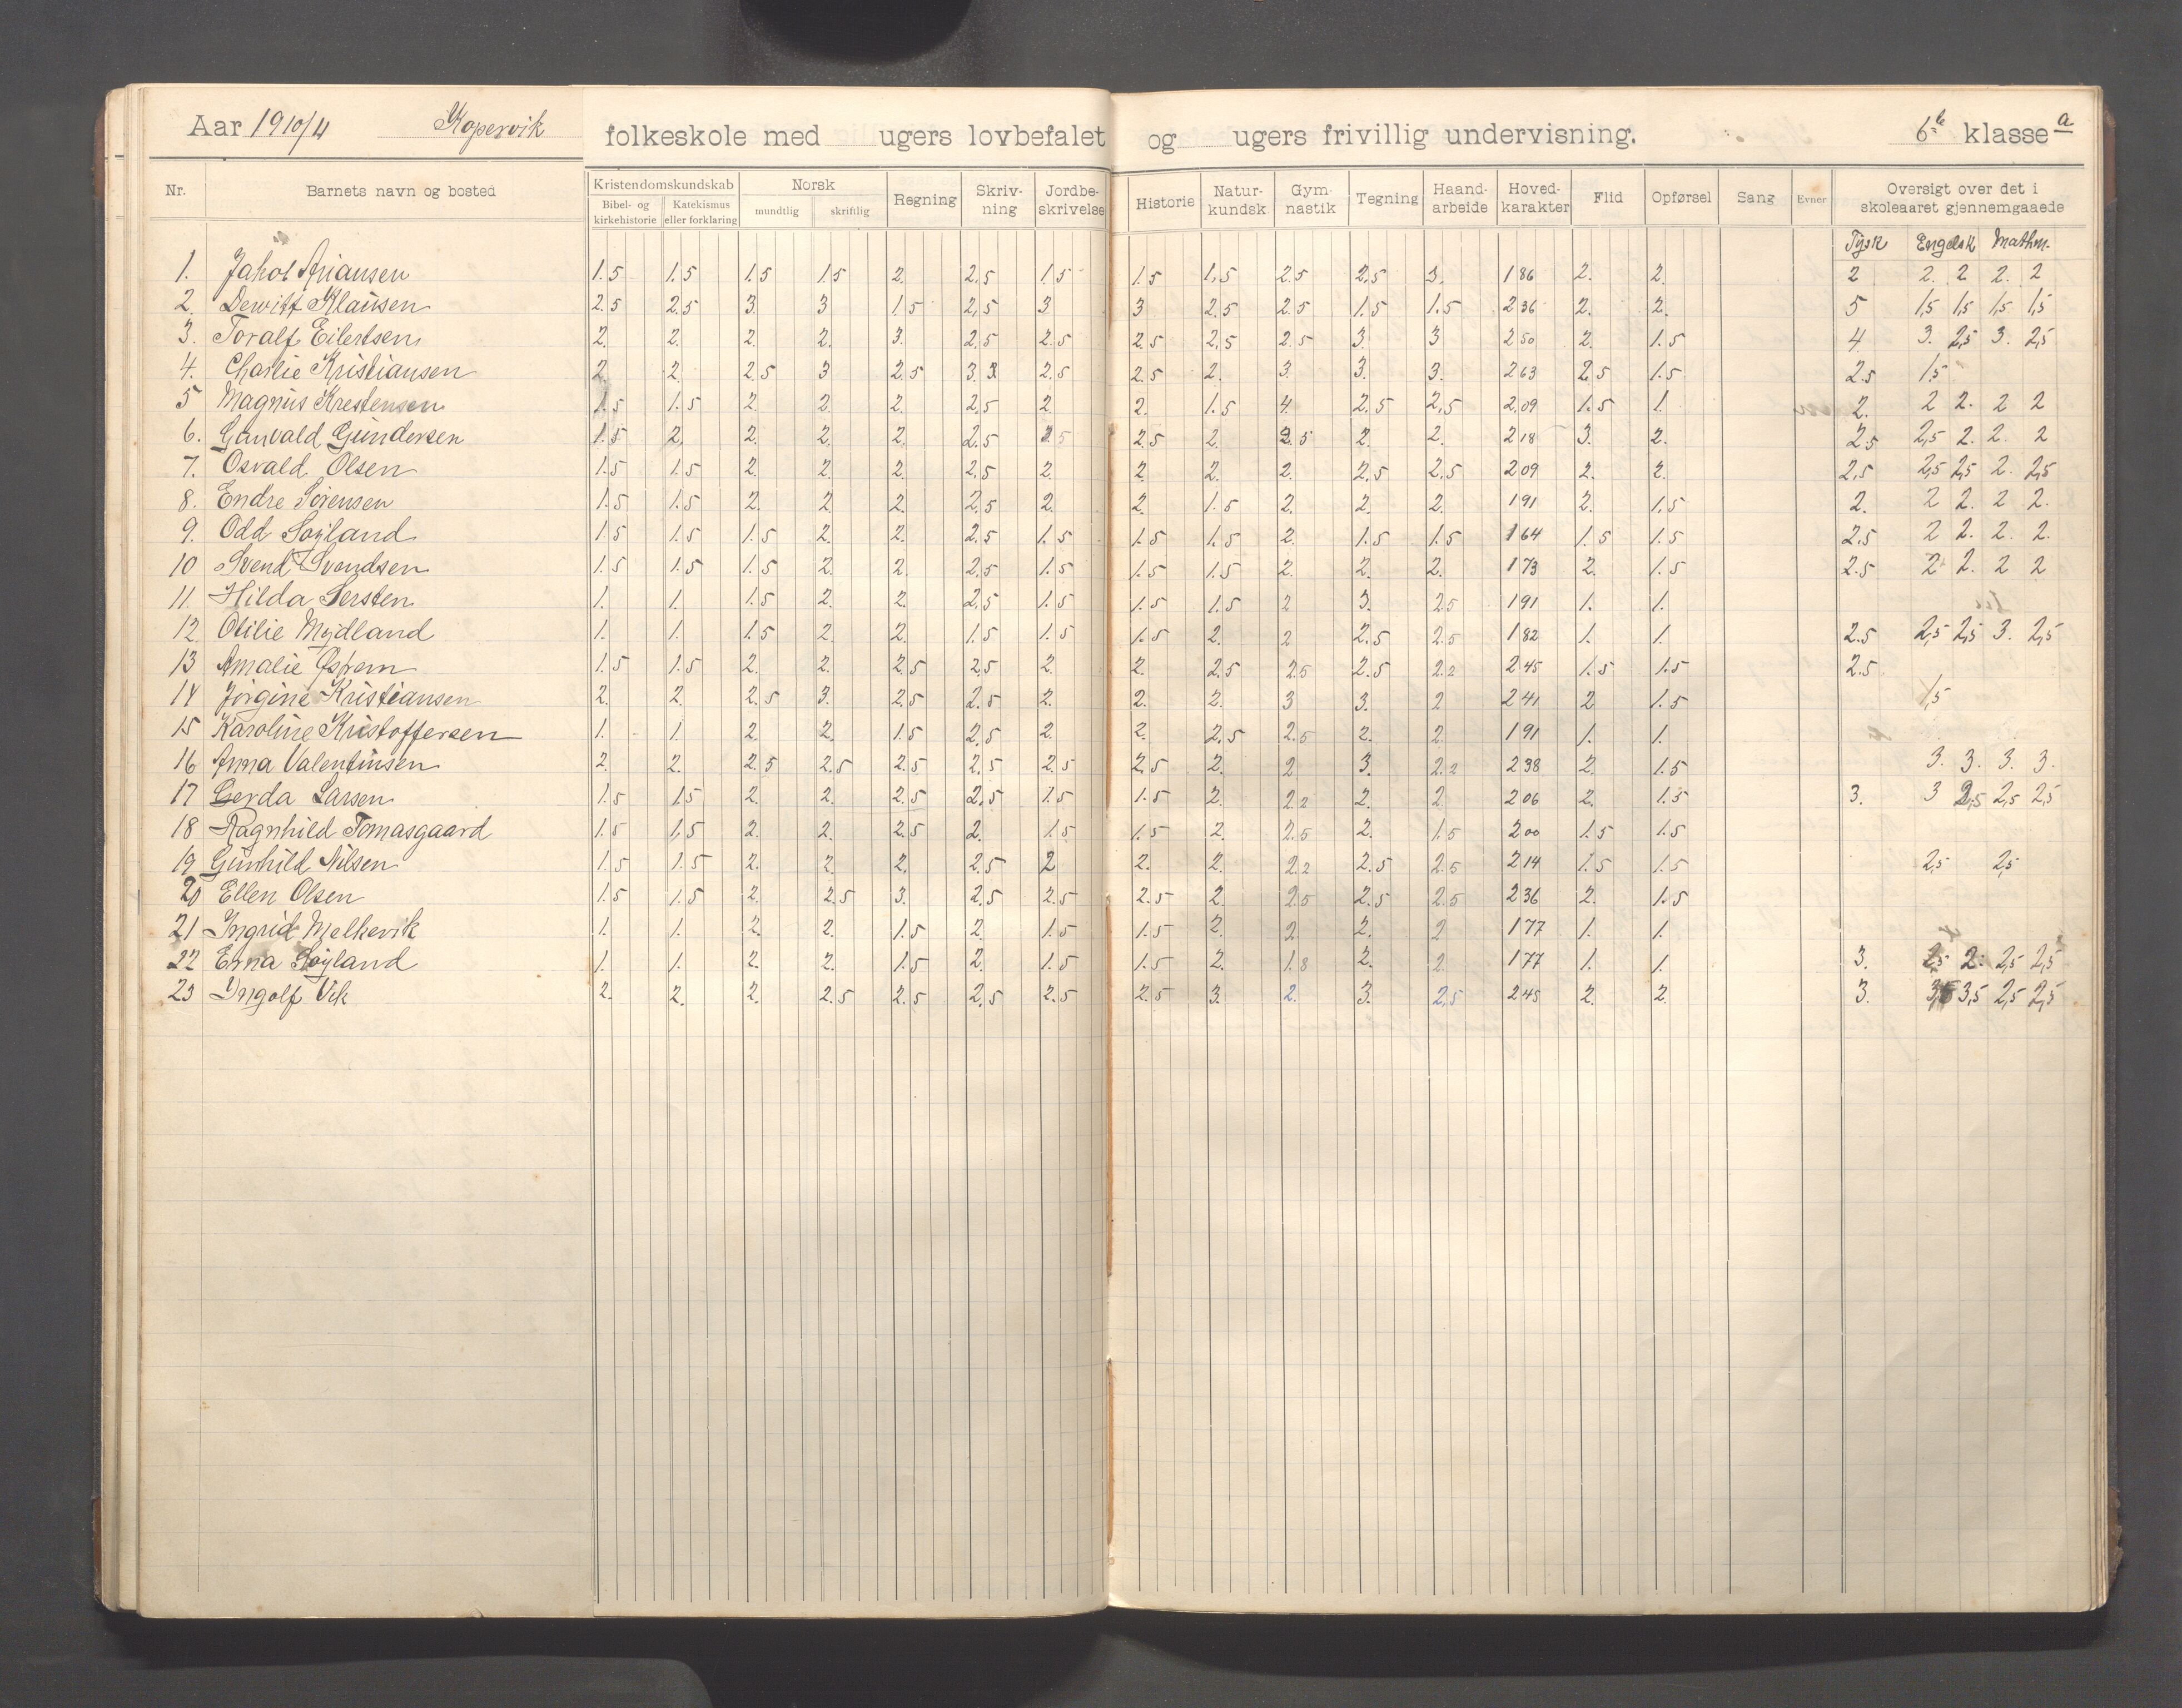 Aar 1910/11 Kopervik folkeskole med ugers lovbefalet og ugers frivillig undervisning. 6te klasse a
Nr. Barnets navn og bosted Kristendomskundskab Norsk Regning Skriv-ning Jordbe-skrivelse Historie Natur-kundsk Gym-nastik Tegning Haand-arbeide Hoved-karakter Flid Opførsel Sang Evner Oversigt over det i skoleaaret gjennemgaaede
Bibel- og kirkehistorie Katekismus eller forklaring mundtlig skriftlig
Tysk Engelsk Mathm.
1. Jakob Ariansen 1.5 1.5 1.5 1.5 2. 2.5 1.5 1.5 1.5 2.5 2.5 3. 186 2. 2. 2 2. 2 2. 2
2. Dewitt Klausen 2.5 2.5 3. 3 1.5 2,5 3 3 2.5 2.5 1.5 1.5 236 2. 2. 5 1,5 1,5 1,5 1,5
3. Toralf Eilertsen 2. 2. 2. 2. 3. 2.5 2.5 2.5 2,5 2.5 3. 3 250 2. 1.5 4 3. 2,5 3. 2,5
4. Charlie Kristiansen 2. 2. 2.5 3 2.5 3. 2.5 2.5 2. 3. 3. 3. 263 2.5 1.5 2.5 1,5
5 Magnus Krestensen 1.5 1.5 2. 2. 2. 2.5 2. 2. 1.5 4. 2.5 2,5 2,09 1.5 1. 2. 2 2. 2 2
6. Gunvald Gundersen 1.5 2. 2. 2. 2. 2.5 2.5 2. 2.5 2. 2. 218 3. 2. 2.5 2,5 2. 2. 2
7. Osvald Olsen 1.5 1.5 2. 2. 2. 2.5 2. 2. 2. 2. 2.5 2,5 209 2. 2. 2,5 2,5 2,5 2. 2,5
8. Endre Sørensen 1.5 1.5 2. 2. 2. 2.5 2. 2. 1.5 2. 2. 2. 191 2. 1.5 2. 2 2. 2 2.
9. Odd Søyland 1.5 1.5 1.5 2. 2. 2.5 1.5 1.5 1.5 2. 1.5 1.5 164 1.5 1.5 2,5 2 2. 2. 2.
10 Svend Svendsen 1.5 1.5 1.5 2. 2. 2.5 1.5 1.5 1.5 2. 2. 2. 173 2. 1.5 2.5 2 2. 2 2
11. Hilda Sersten 1. 1. 1.5 2. 2. 2.5 1.5 1.5 1.5 2 3. 2.5 191 1. 1.
12. Otilie Mydland 1. 1. 1.5 2. 2. 1.5 1.5 1.5 2. 2 2.5 2.5 182 1. 1. 2.5 2,5 2,5 3. 2,5
13 Amalie Østrem 1.5 1.5 2. 2. 2.5 2.5 2. 2. 2.5 2.5 2.5 2.2 245 1.5 1.5 2.5
14 Jørgine Kristiansen 2. 2. 2.5 3. 2.5 2.5 2. 2. 2. 3 3. 2 241 2 1.5 1,5
15 Karoline Kristoffersen 1. 1 2. 2. 1.5 2.5 2. 2. 2.5 2.5 2. 2. 191 1. 1.
16 Anna Valentinsen 2. 2. 2.5 2.5 2.5 2.5 2.5 2,5 2. 2 3. 2.2 238 2. 1.5 3. 3. 3. 3.
17 Gerda Larsen 1.5 1.5 2. 2. 2.5 2.5 1.5 1.5 2. 2.2 2. 2. 206 2. 1.5 3. 3 2,5 2,5 2,5
18 Ragnhild Tomasgaard 1.5 1.5 2. 2. 2.5 2. 1.5 1.5 2. 2.5 2. 1.5 200 1.5 1.5
19 Gunhild Nilsen 1.5 1.5 2. 2. 2. 2.5 2 2. 2. 2.2 2.5 2.5 214 1.5 1.5 2,5 2,5
20 Ellen Olsen 1.5 1.5 2. 2.5 3. 2.5 2.5 2.5 2. 2.5 2.5 2.5 236 2. 1.5
21 Ingrid Melkevik 1. 1. 2. 2. 1.5 2. 1.5 1.5 2. 2 2. 2 177 1. 1.
22 Erna Søyland 1. 1. 2. 2. 1.5 2. 1.5 1.5 2. 1.8 2. 2. 177 1. 1. 3. 2,5 2. 2,5 2,5
23 Ingolf Vik 2. 2. 2. 2.5 2.5 2.5 2.5 2.5 3. 2. 3. 2,5 245 2. 2. 3. 3,5 3,5 2,5 2,5